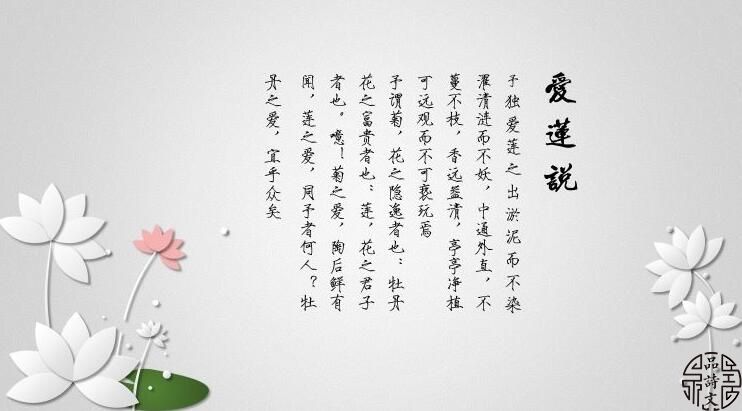 愛蓮説
予独爱莲之出淤泥而不染
濯清涟而不妖，中通外直，不
蔓不枝，香远益清，亭亭净植
可远观而不可亵玩焉
予谓菊，花之隐逸者也；牡丹
花之富贵者也；莲，花之君子
者也。噫！菊之爱，陶后鲜有
闻，莲之爱，同予者何人？牡
丹之爱，宜乎众矣
品詩文